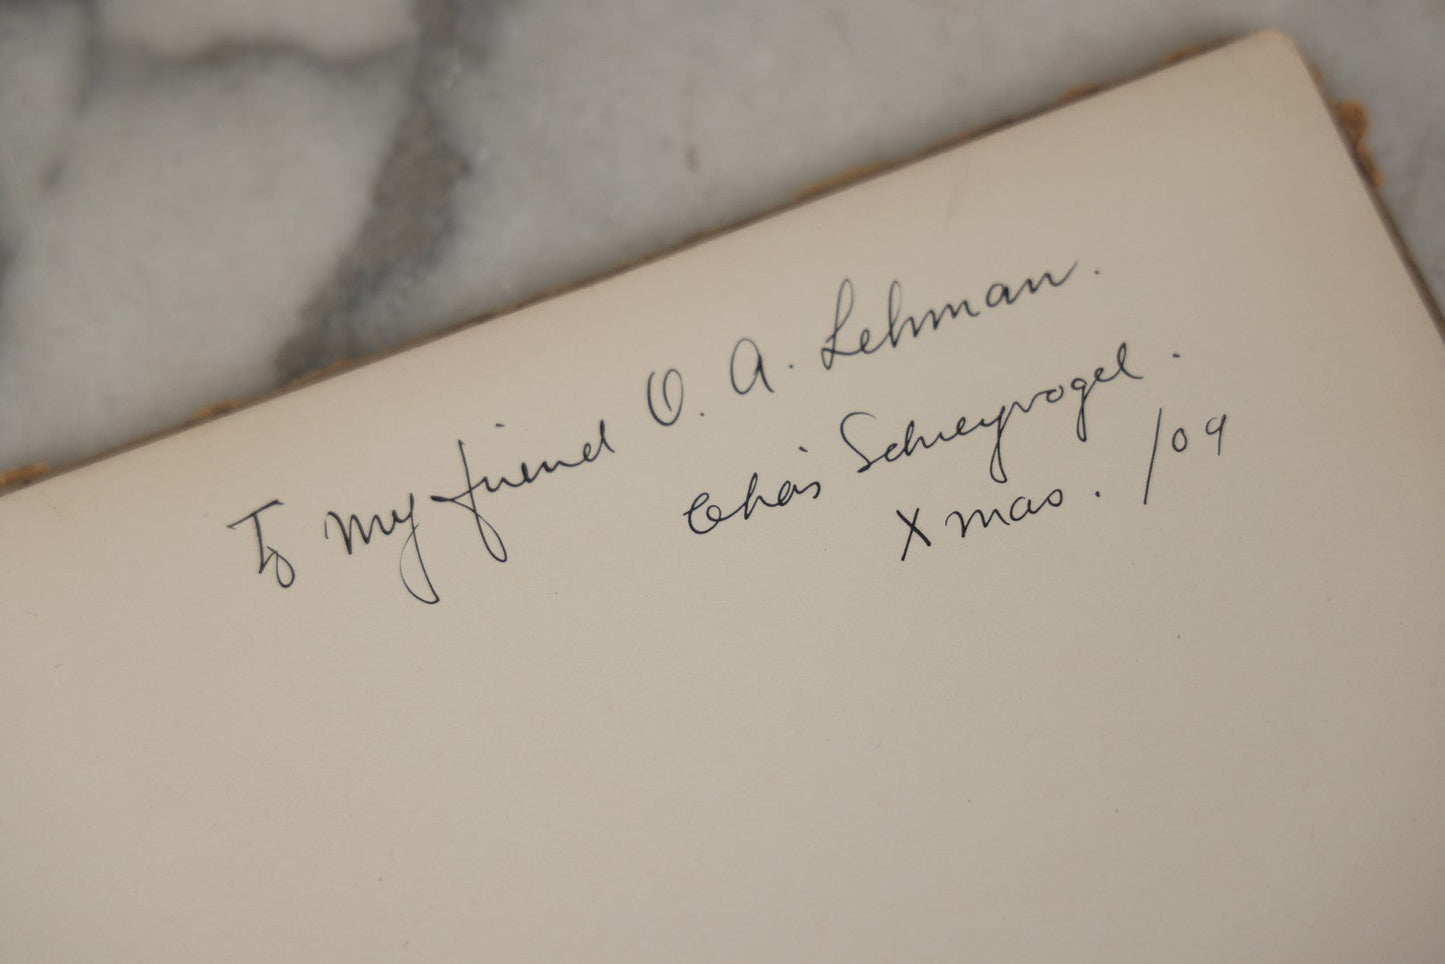 To my friend O. A. Lehman.
Chas Schreyvogel.
Xmas. /09